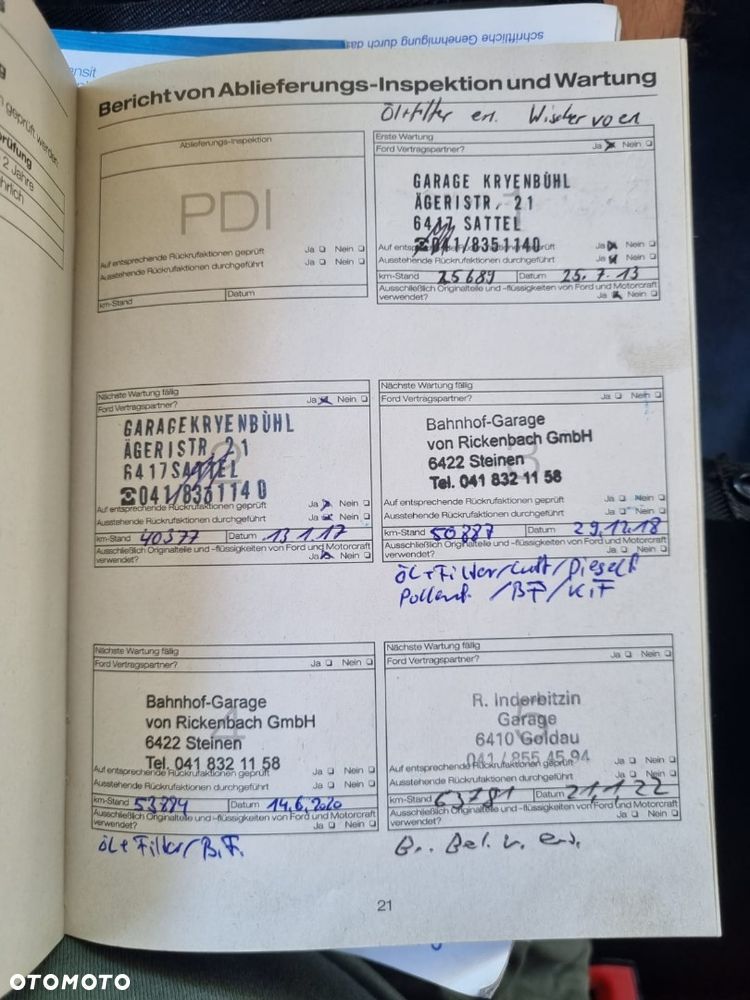 schriftliche Genehmigung durch das
ansit
g
geprüft werden
prüfung
2 Jahre
jährlich
Bericht von Ablieferungs-Inspektion und Wartung
Öl+Filter ern. Wischer vorn
Ablieferungs-Inspektion
PDI
Auf entsprechende Rückrufaktionen geprüft Ja Nein
Ausstehende Rückrufaktionen durchgeführt Ja Nein
km-Stand Datum
Erste Wartung
Ford Vertragspartner? Ja Nein
1
GARAGE KRYENBÜHL
ÄGERISTR. 21
6417 SATTEL
☎041/8351140
Auf entsprechende Rückrufaktionen geprüft Ja Nein
Ausstehende Rückrufaktionen durchgeführt Ja Nein
km-Stand 25689 Datum 25.7.13
Ausschließlich Originalteile und -flüssigkeiten von Ford und Motorcraft
verwendet? Ja Nein
Nächste Wartung fällig
Ford Vertragspartner? Ja Nein
2
GARAGE KRYENBÜHL
ÄGERISTR. 21
6417 SATTEL
☎041/8351140
Auf entsprechende Rückrufaktionen geprüft Ja Nein
Ausstehende Rückrufaktionen durchgeführt Ja Nein
km-Stand 40377 Datum 13.1.17
Ausschließlich Originalteile und -flüssigkeiten von Ford und Motorcraft
verwendet? Ja Nein
Nächste Wartung fällig
Ford Vertragspartner? Ja Nein
3
Bahnhof-Garage
von Rickenbach GmbH
6422 Steinen
Tel. 041 832 11 58
Auf entsprechende Rückrufaktionen geprüft Ja Nein
Ausstehende Rückrufaktionen durchgeführt Ja Nein
km-Stand 50887 Datum 29.12.18
Ausschließlich Originalteile und -flüssigkeiten von Ford und Motorcraft
verwendet? Ja Nein
Öl+Filter/Luft/Dieself
Pollenf. /BF/KF
Nächste Wartung fällig
Ford Vertragspartner? Ja Nein
4
Bahnhof-Garage
von Rickenbach GmbH
6422 Steinen
Tel. 041 832 11 58
Auf entsprechende Rückrufaktionen geprüft Ja Nein
Ausstehende Rückrufaktionen durchgeführt Ja Nein
km-Stand 53884 Datum 14.6.2020
Ausschließlich Originalteile und -flüssigkeiten von Ford und Motorcraft
verwendet? Ja Nein
Öl+Filter/B.F.
Nächste Wartung fällig
Ford Vertragspartner? Ja Nein
5
R. Inderbitzin
Garage
6410 Goldau
041 / 855 45 94
Auf entsprechende Rückrufaktionen geprüft Ja Nein
Ausstehende Rückrufaktionen durchgeführt Ja Nein
km-Stand 63781 Datum 21.1.22
Ausschließlich Originalteile und -flüssigkeiten von Ford und Motorcraft
verwendet? Ja Nein
Bel. v.
21
OTOMOTO